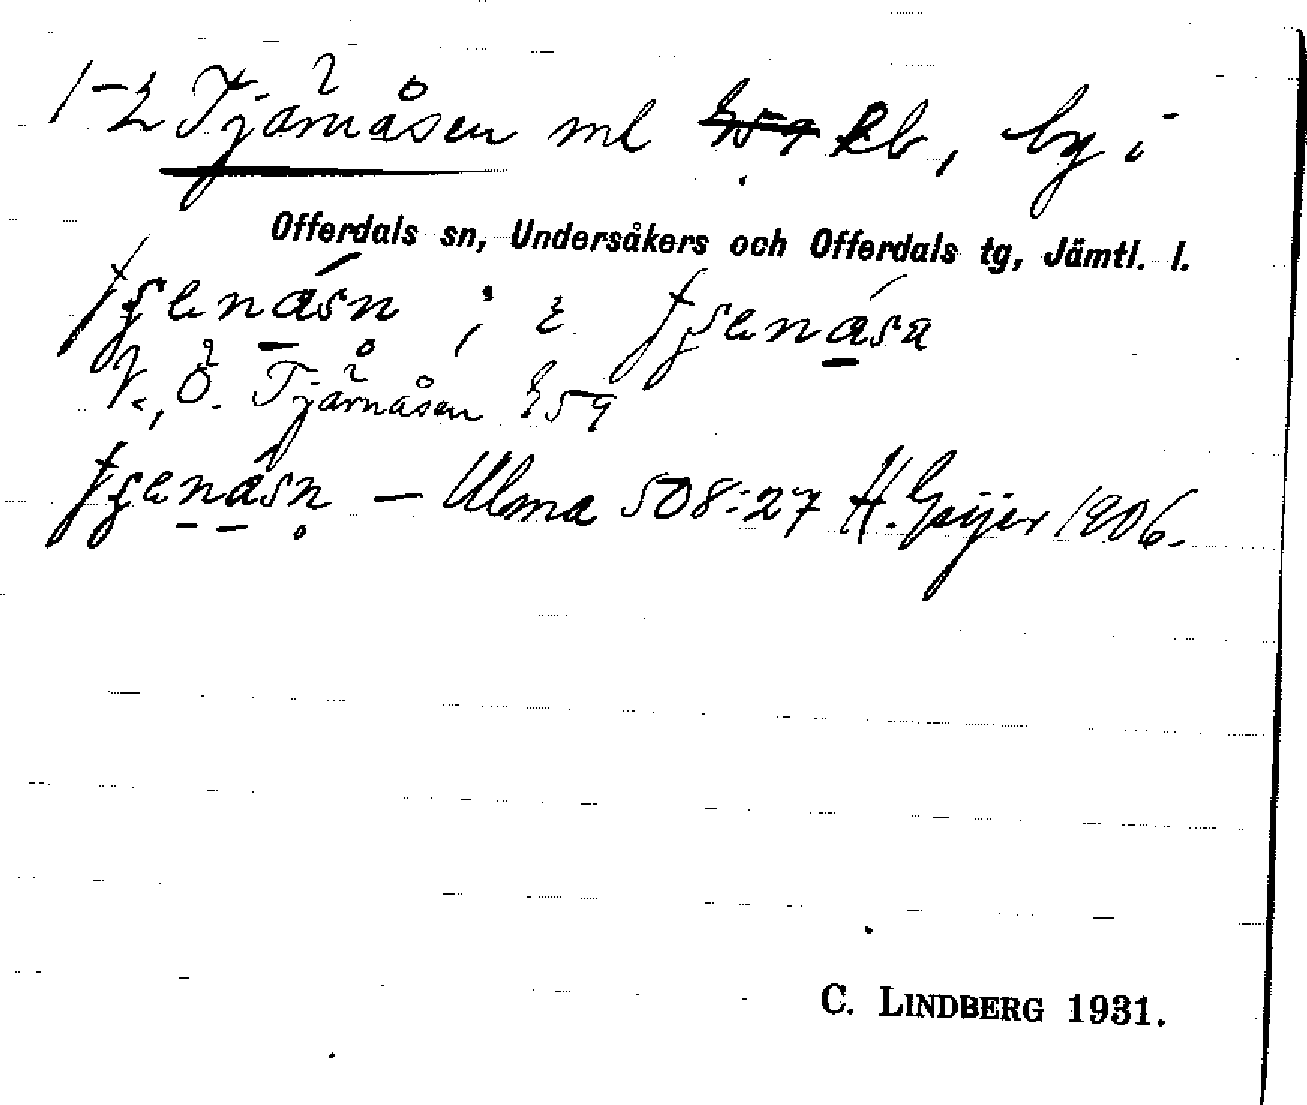 1-2 Tjärnåsen ml E59 Rb, by i
Offerdals sn, Undersåkers och Offerdals tg, Jämtl. l.
tjenåsn ; i tjenåsa
V., Ö. Tjärnåsen E59
tjenåsn – Ulma 508:27 H. Geijer 1906.
C. LINDBERG 1931.